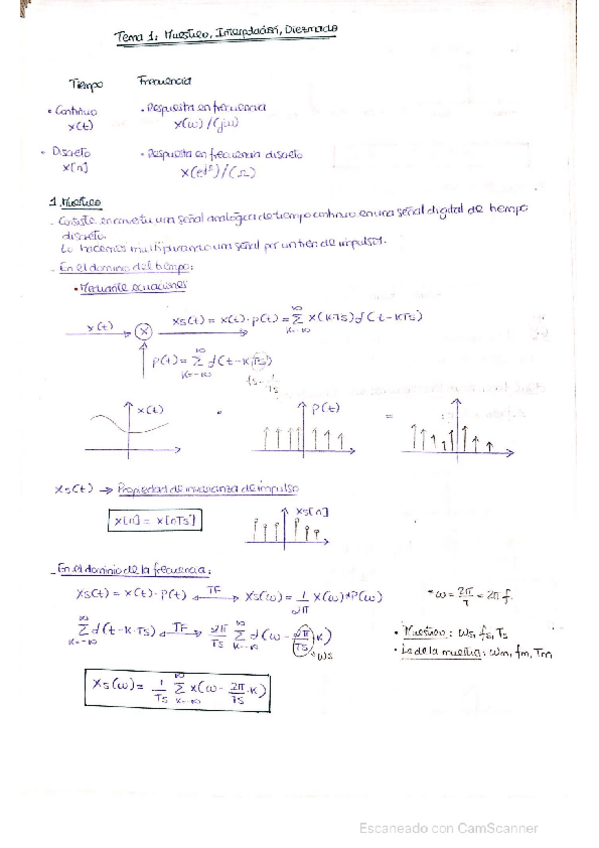 Tema 1: Muestreo, Interpolación, Diezmado
Tiempo Frecuencia
• Continuo • Respuesta en frecuencia
x(t) X(ω)/(jω)
• Discreto • Respuesta en frecuencia discreto
x[n] X(e^jΩ)/(Ω)
1. Muestreo
- Consiste en convertir una señal analógica de tiempo continuo en una señal digital de tiempo
discreto.
Lo hacemos multiplicando una señal por un tren de impulsos.
- En el dominio del tiempo:
• Mediante ecuaciones
x(t) → ⊗ xs(t) = x(t)·p(t) = ∑_{k=-∞}^{∞} x(kTs)δ(t-kTs)
p(t) = ∑_{k=-∞}^{∞} δ(t-kTs)
fs = 1/Ts
x(t) · p(t) =
xs(t) → Propiedad de invarianza de impulso
x[n] = x[nTs] xs[n]
- En el dominio de la frecuencia:
xs(t) = x(t)·p(t) ←TF→ Xs(ω) = 1/2π X(ω)*P(ω) *ω = 2π/T = 2πf
∑_{k=-∞}^{∞} δ(t-k·Ts) ←TF→ 2π/Ts ∑_{k=-∞}^{∞} δ(ω - 2π/Ts k) → ωs • Muestreo: ωs, fs, Ts
• de la muestra: ωm, fm, Tm
Xs(ω) = 1/Ts ∑_{k=-∞}^{∞} X(ω - 2π/Ts·k)
Escaneado con CamScanner